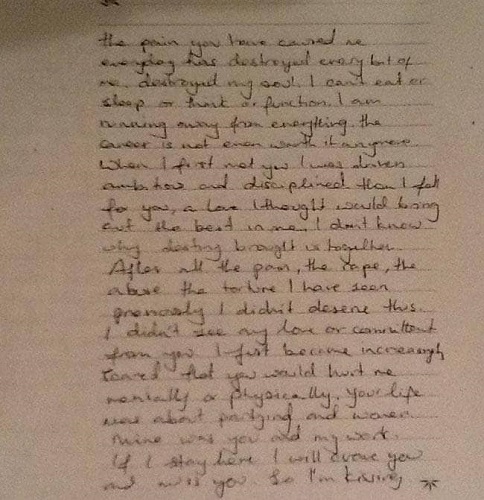 the pain you have caused me
everyday has destroyed every bit of
me, destroyed my soul. I can't eat or
sleep or think or function. I am
running away from everything. the
career is not even worth it anymore.
When I first met you I was driven
ambitious and disciplined then I fell
for you, a love I thought would bring
out the best in me. I don't know
why destiny brought us together.
After all the pain, the rape, the
abuse the torture I have seen
previously I didn't deserve this.
I didn't see any love or commitment
from you. I just became increasingly
scared that you would hurt me
mentally or physically. Your life
was about partying and women.
Mine was you and my work.
If I stay here I will crave you
and miss you. So I'm kissing